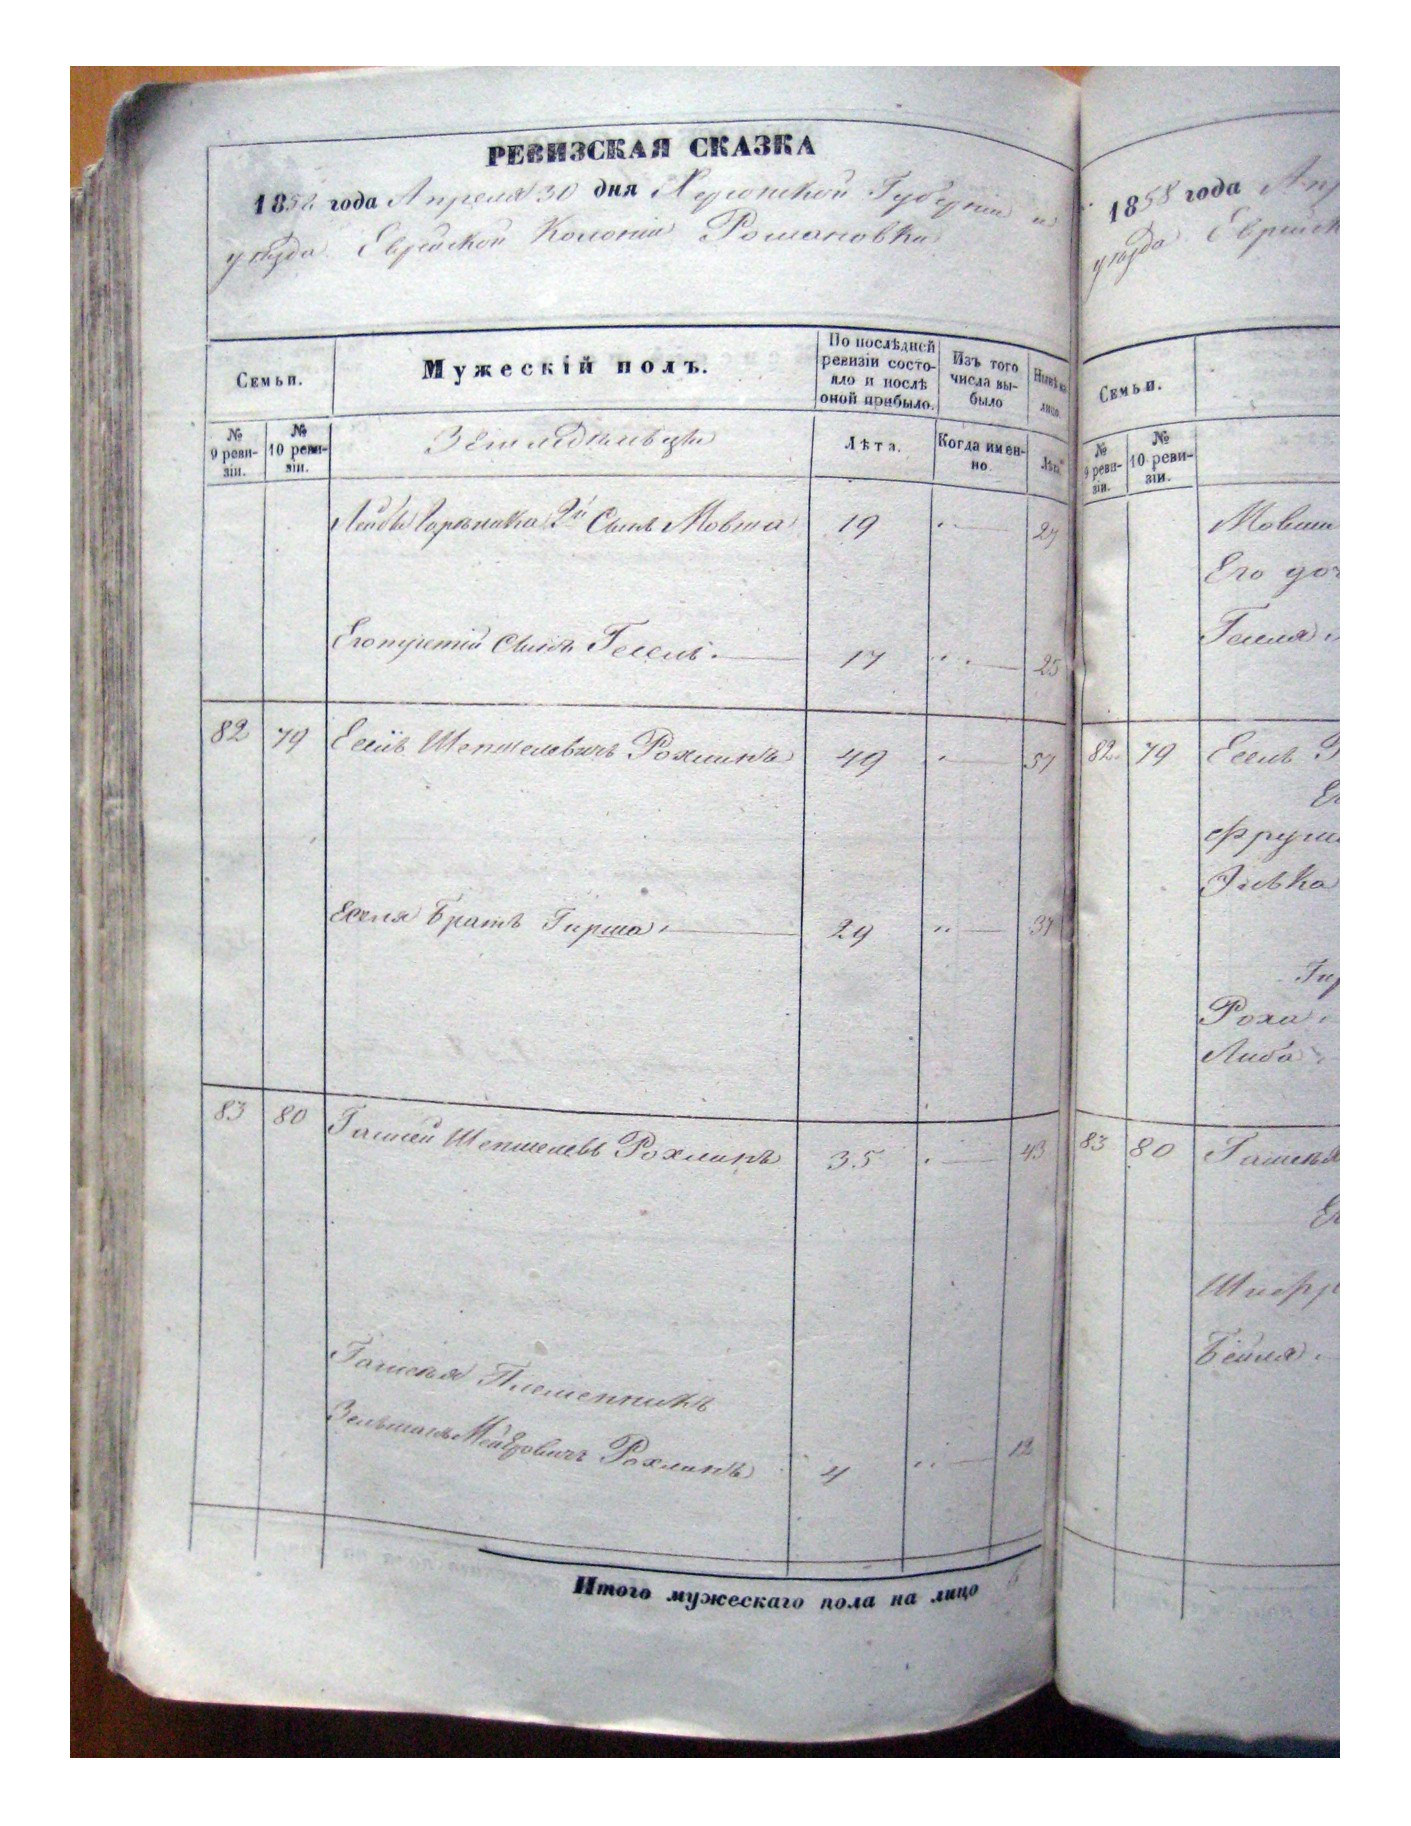 РЕВИЗСКАЯ СКАЗКА
1858 года Апреля 30 дня Херсонской Губерніи и
уѣзда Еврейской Колоніи Романовки
Семьи.
Мужескій полъ.
По послѣдней
ревизіи состо-
яло и послѣ
оной прибыло.
Изъ того
числа вы-
было
Нынѣ на
лицо.
№
9 реви-
зіи.
№
10 реви-
зіи.
Земледѣльцы
Лѣта.
Когда имен-
но.
Лѣта
2й Сынъ Мовша 19 27
Его третій Сынъ Гесель. 17 25
82 79 Есель Шепшелевичъ Рохлинъ 49 57
Еселя Братъ Гирша 29 37
83 80 Шепшелевъ Рохлинъ 35 43
Племенникъ
Зельманъ Меёровичъ Рохлинъ 4 12
Итого мужескаго пола на лицо 6
1858 года Апр
уѣзда Еврейск
Семьи.
№
9 реви-
зіи.
№
10 реви-
зіи.
Мовши
Его доч
Геселя
82. 79 Есель Р
Ег
Фрума
Ривка
Гир
Роха
Либа
83 80
Ег
Бейля